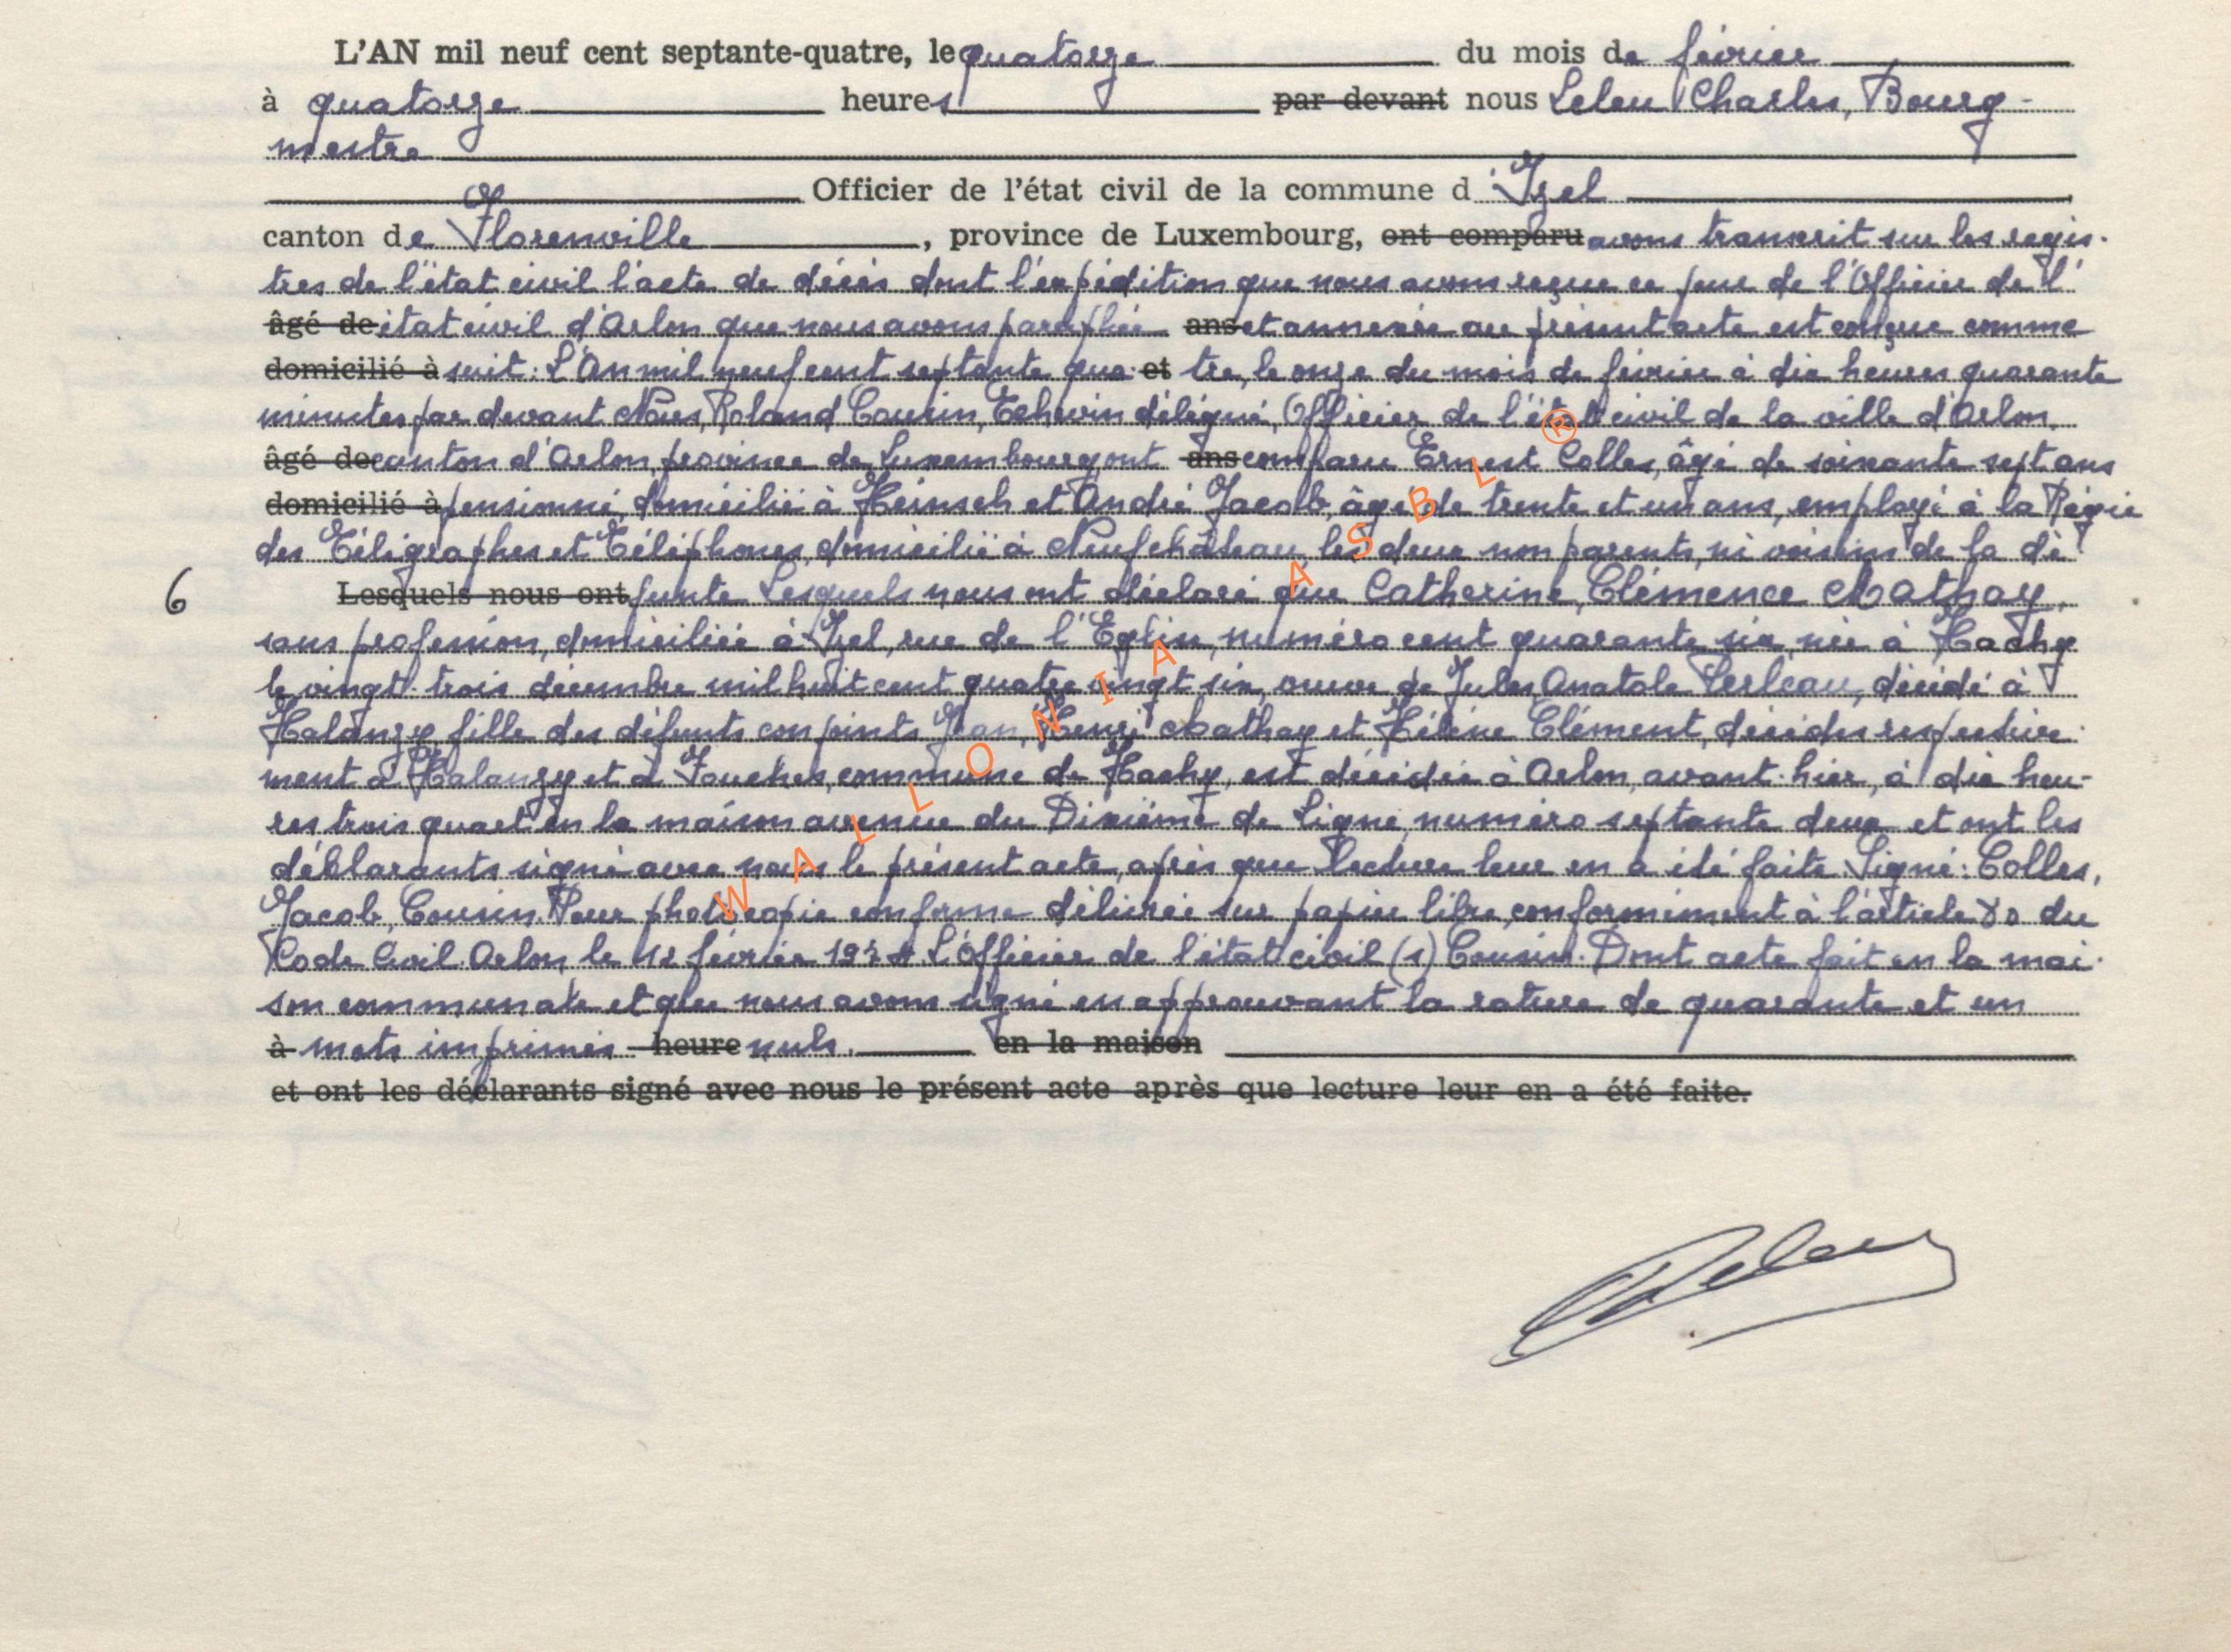 L'AN mil neuf cent septante-quatre, le quatorze du mois de février
à quatorze heures par devant nous Leleu Charles, Bourg-
mestre
Officier de l'état civil de la commune d'Izel
canton de Florenville, province de Luxembourg, ont comparu avons transcrit sur les regis-
tres de l'état civil l'acte de décès dont l'expédition que nous avons reçue ce jour de l'Officier de l'
âgé de état civil d'Arlon que nous avons paraphée ans et annexée au présent acte est conçue comme
domicilié à suit: L'An mil neuf cent septante qua- et tre, le onze du mois de février à dix heures quarante
minutes par devant Nous, Roland Cousin, Echevin délégué, Officier de l'état civil de la ville d'Arlon,
âgé de canton d'Arlon, province de Luxembourg ont ans comparu Ernest Colles, âgé de soixante sept ans
domicilié à pensionné, domicilié à Heinsch et André Jacob, âgé de trente et un ans, employé à la Régie
des Télégraphes et Téléphones, domicilié à Neufchâteau, les deux non parents, ni voisins de la dé
6 Lesquels nous ont funte Lesquels nous ont déclaré que Catherine, Clémence Mathay,
sans profession, domiciliée à Izel, rue de l'Eglise, numéro cent quarante six, née à Hachy
le vingt-trois décembre mil huit cent quatre vingt six, veuve de Jules, Anatole Perleau, décédé à
Halanzy, fille des défunts conjoints Jean, Henri Mathay et Hélène Clément, décédés respective-
ment à Halanzy et à Fouches, commune de Hachy, est décédée à Arlon, avant-hier, à dix heu-
res trois quart en la maison avenue du Dixième de Ligne, numéro septante deux et ont les
déclarants signé avec nous le présent acte, après que lecture leur en a été faite. Signé: Colles,
Jacob, Cousin. Pour photocopie conforme délivrée sur papier libre, conformément à l'article 80 du
Code Civil Arlon, le 12 février 1974 L'Officier de l'état civil (s) Cousin. Dont acte fait en la mai-
son communale et que nous avons signé en approuvant la rature de quarante et un
à mots imprimés heure nuls. en la maison
et ont les déclarants signé avec nous le présent acte après que lecture leur en a été faite.
Leleu
WALLONIA ASBL ®